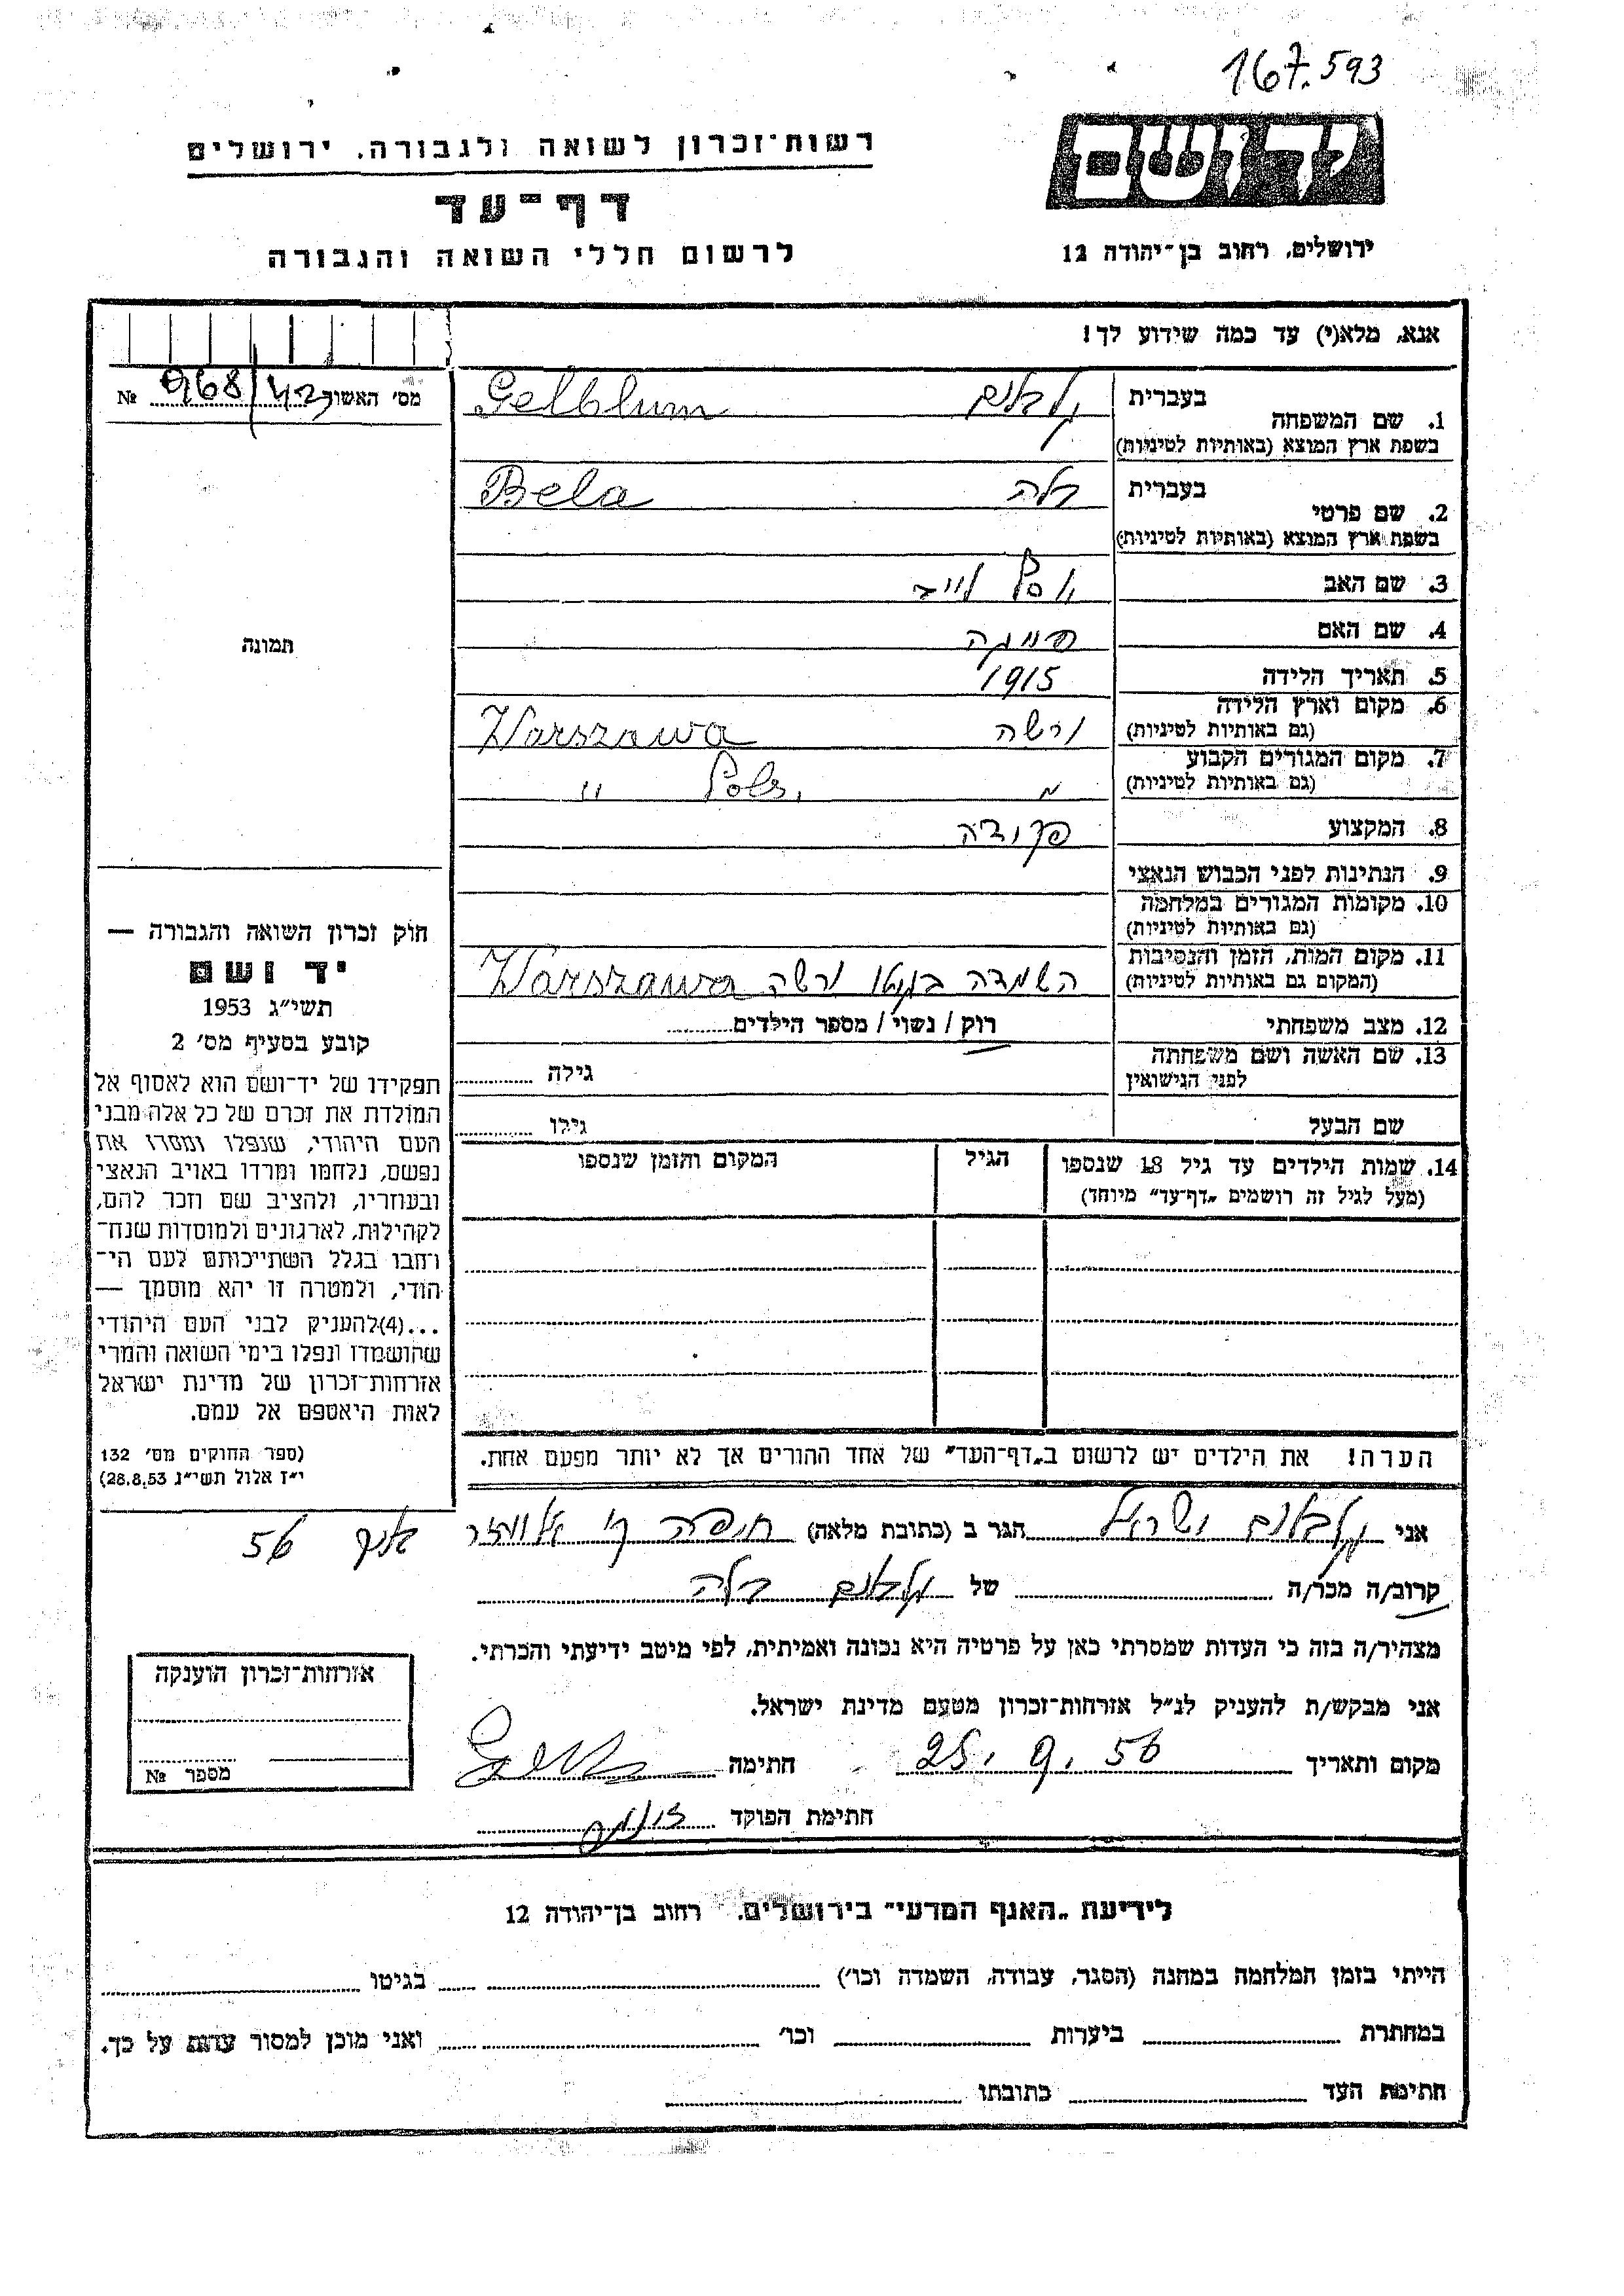 167.593
רשות־זכרון לשואה ולגבורה. ירושלים
דף־עד
לרשום חללי השואה והגבורה
יד ושם
ירושלים, רחוב בן־יהודה 12
אנא, מלא(י) עד כמה שידוע לך!
מס׳ האשור 968/42 №
1. שם המשפחה בעברית גלבלום Gelblum
בשפת ארץ המוצא (באותיות לטיניות)
2. שם פרטי בעברית בלה Bela
בשפת ארץ המוצא (באותיות לטיניות)
3. שם האב יוסף לייב
4. שם האם
5. תאריך הלידה 1915
6. מקום וארץ הלידה ורשה Warszawa
(גם באותיות לטיניות)
7. מקום המגורים הקבוע " Pols. "
(גם באותיות לטיניות)
8. המקצוע פקידה
9. הנתינות לפני הכבוש הנאצי
10. מקומות המגורים במלחמה
(גם באותיות לטיניות)
11. מקום המות, הזמן והנסיבות השמדה בגטו ורשה Warszawa
(המקום גם באותיות לטיניות)
12. מצב משפחתי רוק / נשוי / מספר הילדים
13. שם האשה ושם משפחתה
לפני הנישואין גילה
שם הבעל גילו
14. שמות הילדים עד גיל 18 שנספו הגיל המקום והזמן שנספו
(מעל לגיל זה רושמים „דף־עד״ מיוחד)
הערה! את הילדים יש לרשום ב„דף־העד״ של אחד ההורים אך לא יותר מפעם אחת.
תמונה
חוק זכרון השואה והגבורה —
יד ושם
תשי״ג 1953
קובע בסעיף מס׳ 2
תפקידו של יד־ושם הוא לאסוף אל
המולדת את זכרם של כל אלה מבני
העם היהודי, שנפלו ומסרו את
נפשם, נלחמו ומרדו באויב הנאצי
ובעוזריו, ולהציב שם וזכר להם,
לקהילות, לארגונים ולמוסדות שנח־
רבו בגלל השתייכותם לעם הי־
הודי, ולמטרה זו יהא מוסמך —
...(4)להעניק לבני העם היהודי
שהושמדו ונפלו בימי השואה והמרי
אזרחות־זכרון של מדינת ישראל
לאות היאספם אל עמם.
(ספר החוקים מס׳ 132
י״ז אלול תשי״ג 28.8.53)
אני גלבלום ישראל הגר ב (כתובת מלאה) חיפה ק׳ אליעזר
56
קרוב/ה מכר/ה של גלבלום בלה
מצהיר/ה בזה כי העדות שמסרתי כאן על פרטיה היא נכונה ואמיתית, לפי מיטב ידיעתי והכרתי.
אני מבקש/ת להעניק לנ״ל אזרחות־זכרון מטעם מדינת ישראל.
מקום ותאריך 25. 9. 56 חתימה
חתימת הפוקד
אזרחות־זכרון הוענקה
מספר №
לידיעת „האגף המדעי״ בירושלים. רחוב בן־יהודה 12
הייתי בזמן המלחמה במחנה (הסגר, עבודה, השמדה וכו׳) בגיטו
במחתרת ביערות וכו׳ ואני מוכן למסור עדות על כך.
חתימת העד כתובתו